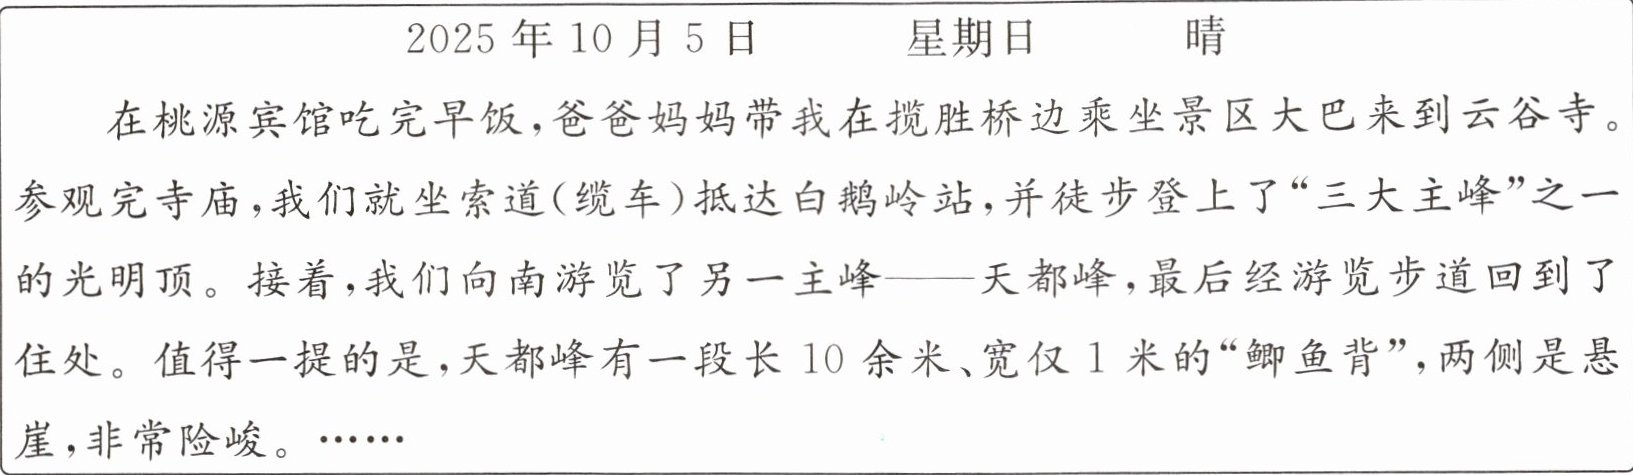 2025 年 10 月 5 日 星期日 晴
在桃源宾馆吃完早饭,爸爸妈妈带我在揽胜桥边乘坐景区大巴来到云谷寺。
参观完寺庙,我们就坐索道(缆车)抵达白鹅岭站,并徒步登上了“三大主峰”之一
的光明顶。接着,我们向南游览了另一主峰——天都峰,最后经游览步道回到了
住处。值得一提的是,天都峰有一段长 10 余米、宽仅 1 米的“鲫鱼背”,两侧是悬
崖,非常险峻。……